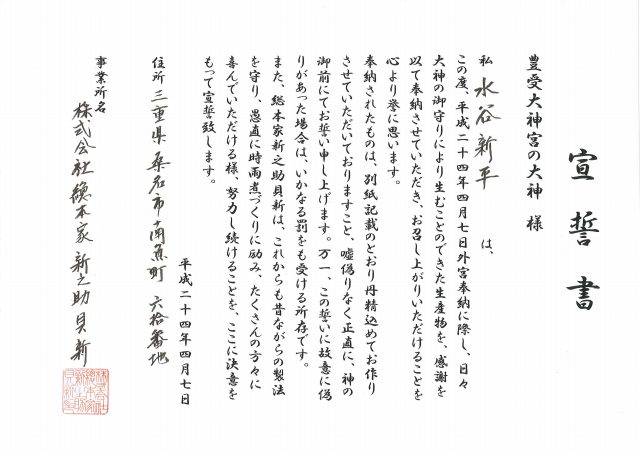 宣誓書
豊受大神宮の大神 様
私 水谷新平 は、
この度、平成二十四年四月七日外宮奉納に際し、日々
大神の御守りにより生むことのできた生産物を、感謝を
以て奉納させていただき、お召し上がりいただけることを
心より誉に思います。
奉納されたものは、別紙記載のとおり丹精込めてお作り
させていただいておりますこと、嘘偽りなく正直に、神の
御前にてお誓い申し上げます。万一、この誓いに故意に偽
りがあった場合は、いかなる罰をも受ける所存です。
また、総本家新之助貝新は、これからも昔ながらの製法
を守り、愚直に時雨煮づくりに励み、たくさんの方々に
喜んでいただける様、努力し続けることを、ここに決意を
もって宣誓致します。
平成二十四年四月七日
住所 三重県桑名市南魚町 六拾番地
事業所名 株式会社總本家 新之助貝新